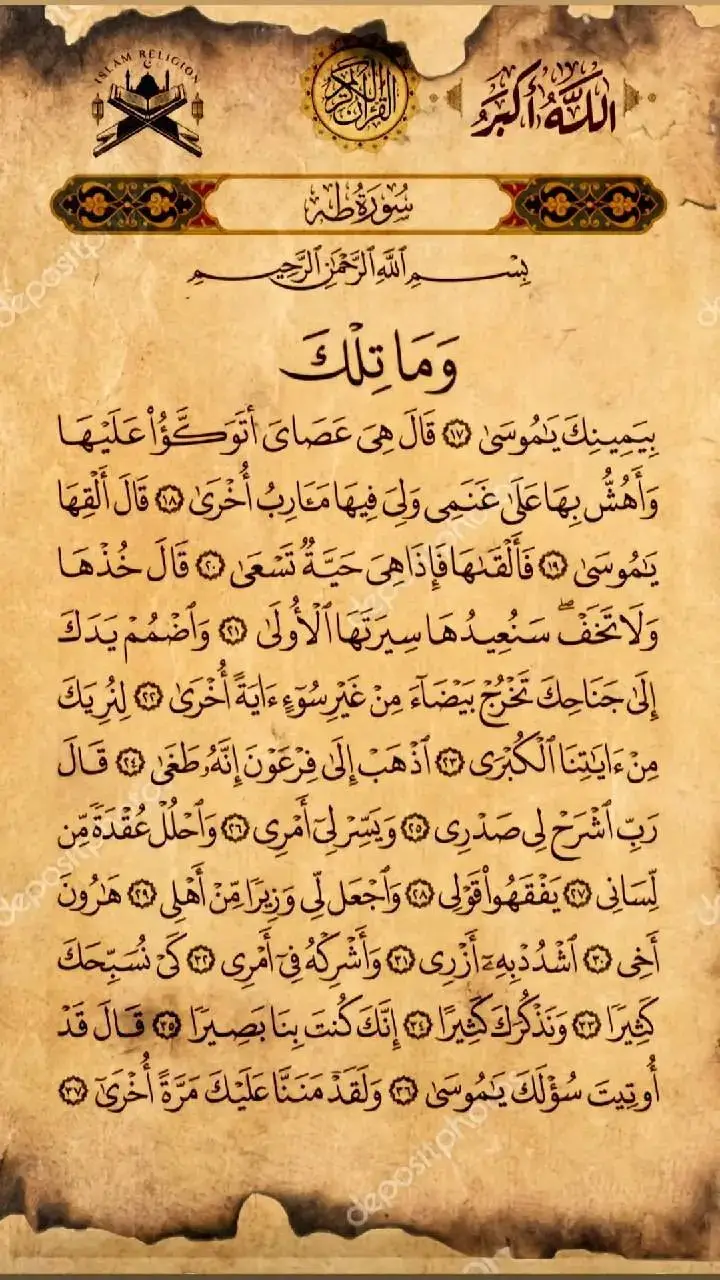 ISLAM RELIGION
القرآن الكريم
اللَّهُ أَكْبَرُ
سُورَةُ طه
بِسْمِ ٱللَّهِ ٱلرَّحْمَٰنِ ٱلرَّحِيمِ
وَمَا تِلْكَ
بِيَمِينِكَ يَٰمُوسَىٰ ١٧ قَالَ هِىَ عَصَاىَ أَتَوَكَّؤُا۟ عَلَيْهَا
وَأَهُشُّ بِهَا عَلَىٰ غَنَمِى وَلِىَ فِيهَا مَـَٔارِبُ أُخْرَىٰ ١٨ قَالَ أَلْقِهَا
يَٰمُوسَىٰ ١٩ فَأَلْقَىٰهَا فَإِذَا هِىَ حَيَّةٌ تَسْعَىٰ ٢٠ قَالَ خُذْهَا
وَلَا تَخَفْ ۖ سَنُعِيدُهَا سِيرَتَهَا ٱلْأُولَىٰ ٢١ وَٱضْمُمْ يَدَكَ
إِلَىٰ جَنَاحِكَ تَخْرُجْ بَيْضَآءَ مِنْ غَيْرِ سُوٓءٍ ءَايَةً أُخْرَىٰ ٢٢ لِنُرِيَكَ
مِنْ ءَايَٰتِنَا ٱلْكُبْرَى ٢٣ ٱذْهَبْ إِلَىٰ فِرْعَوْنَ إِنَّهُۥ طَغَىٰ ٢٤ قَالَ
رَبِّ ٱشْرَحْ لِى صَدْرِى ٢٥ وَيَسِّرْ لِىٓ أَمْرِى ٢٦ وَٱحْلُلْ عُقْدَةً مِّن
لِّسَانِى ٢٧ يَفْقَهُوا۟ قَوْلِى ٢٨ وَٱجْعَل لِّى وَزِيرًا مِّنْ أَهْلِى ٢٩ هَٰرُونَ
أَخِى ٣٠ ٱشْدُدْ بِهِۦٓ أَزْرِى ٣١ وَأَشْرِكْهُ فِىٓ أَمْرِى ٣٢ كَىْ نُسَبِّحَكَ
كَثِيرًا ٣٣ وَنَذْكُرَكَ كَثِيرًا ٣٤ إِنَّكَ كُنتَ بِنَا بَصِيرًا ٣٥ قَالَ قَدْ
أُوتِيتَ سُؤْلَكَ يَٰمُوسَىٰ ٣٦ وَلَقَدْ مَنَنَّا عَلَيْكَ مَرَّةً أُخْرَىٰٓ ٣٧
depositphotos